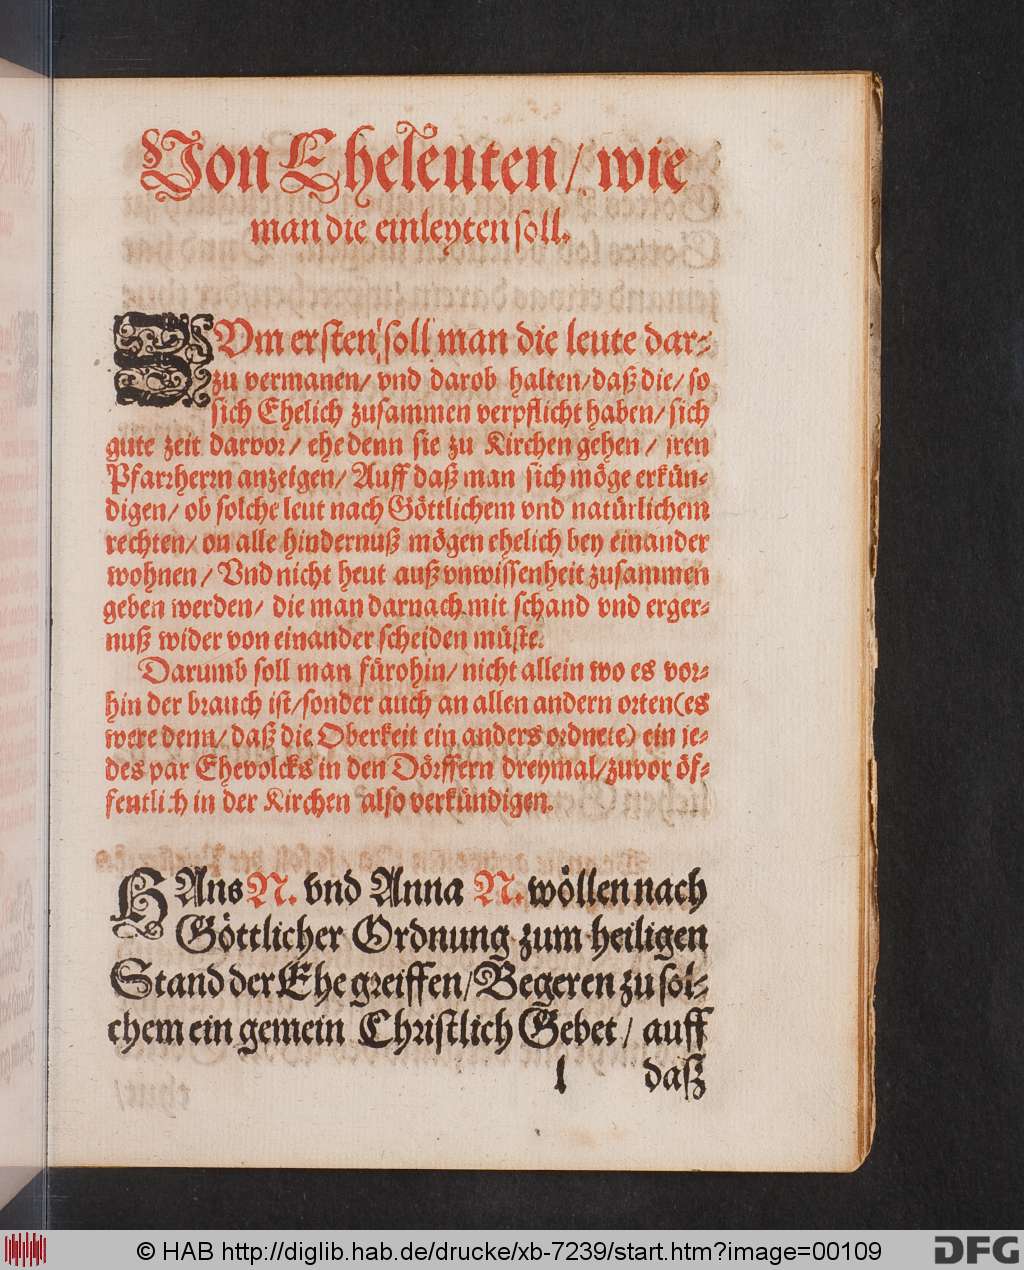 Von Eheleuten/ wie
man die einleyten soll.
ZVm ersten/ soll man die leute dar-
zu vermanen/ vnd darob halten/ daß die/ so
sich Ehelich zusammen verpflicht haben/ sich
gute zeit darvor/ ehe denn sie zu Kirchen gehen/ jren
Pfarrherrn anzeigen/ Auff daß man sich möge erkün-
digen/ ob solche leut nach Göttlichem vnd natürlichem
rechten/ on alle hindernuß mögen ehelich bey einander
wohnen/ Vnd nicht heut auß vnwissenheit zusammen
geben werden/ die man darnach mit schand vnd erger-
nuß wider von einander scheiden müste.
Darumb soll man fürohin/ nicht allein wo es vor-
hin der brauch ist/ sonder auch an allen andern orten (es
were denn/ daß die Oberkeit ein anders ordnete) ein je-
des par Ehevolcks in den Dörffern dreymal/ zuvor öf-
fentlich in der Kirchen also verkündigen.
HAns N. vnd Anna N. wöllen nach
Göttlicher Ordnung zum heiligen
Stand der Ehe greiffen/ Begeren zu sol-
chem ein gemein Christlich Gebet/ auff
l daß
© HAB http://diglib.hab.de/drucke/xb-7239/start.htm?image=00109
DFG